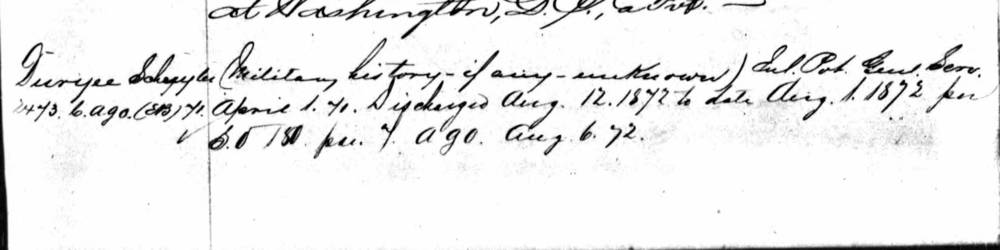 at Washington, D.C.,
Duryee Schuyler (Military history - if any - unknown) Enl. Pvt. Genl. Serv.
2473. b. ago. (EB) 71. April 1. 71. Discharged Aug. 12. 1872 to date Aug. 1. 1872 per
S.O 180. par. 7. A G O. Aug. 6. 72.